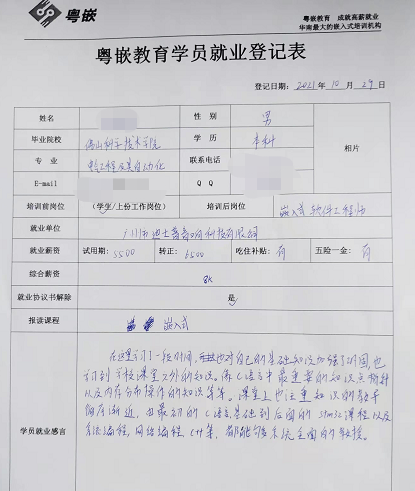 粤嵌
粤嵌教育 成就高薪就业
华南最大的嵌入式培训机构
粤嵌教育学员就业登记表
登记日期：2021年10月29日
姓名 性别 男
毕业院校 佛山科学技术学院 学历 本科 相片
专业 工程及其自动化 联系电话
E-mail Q Q
培训前岗位 （学生/上份工作岗位） 培训后岗位 嵌入式软件工程师
就业单位 广州市迪士普音响科技有限公司
就业薪资 试用期：5500 转正：6500 吃住补贴：有 五险一金：有
综合薪资 8K
就业协议书解除 是
报读课程 嵌入式
学员就业感言
在这里学习了一段时间，也对自己的基础知识加强了巩固也
学到学校课堂之外的知识。像C语言中最重要的知识点指针
以及内存分布操作的知识等等。课堂上也注重知识的教导
循序渐近，由最初的C语言基础到后面的stm32课程以及
系统编程，网络编程，C++等，都能够系统全面的教授。